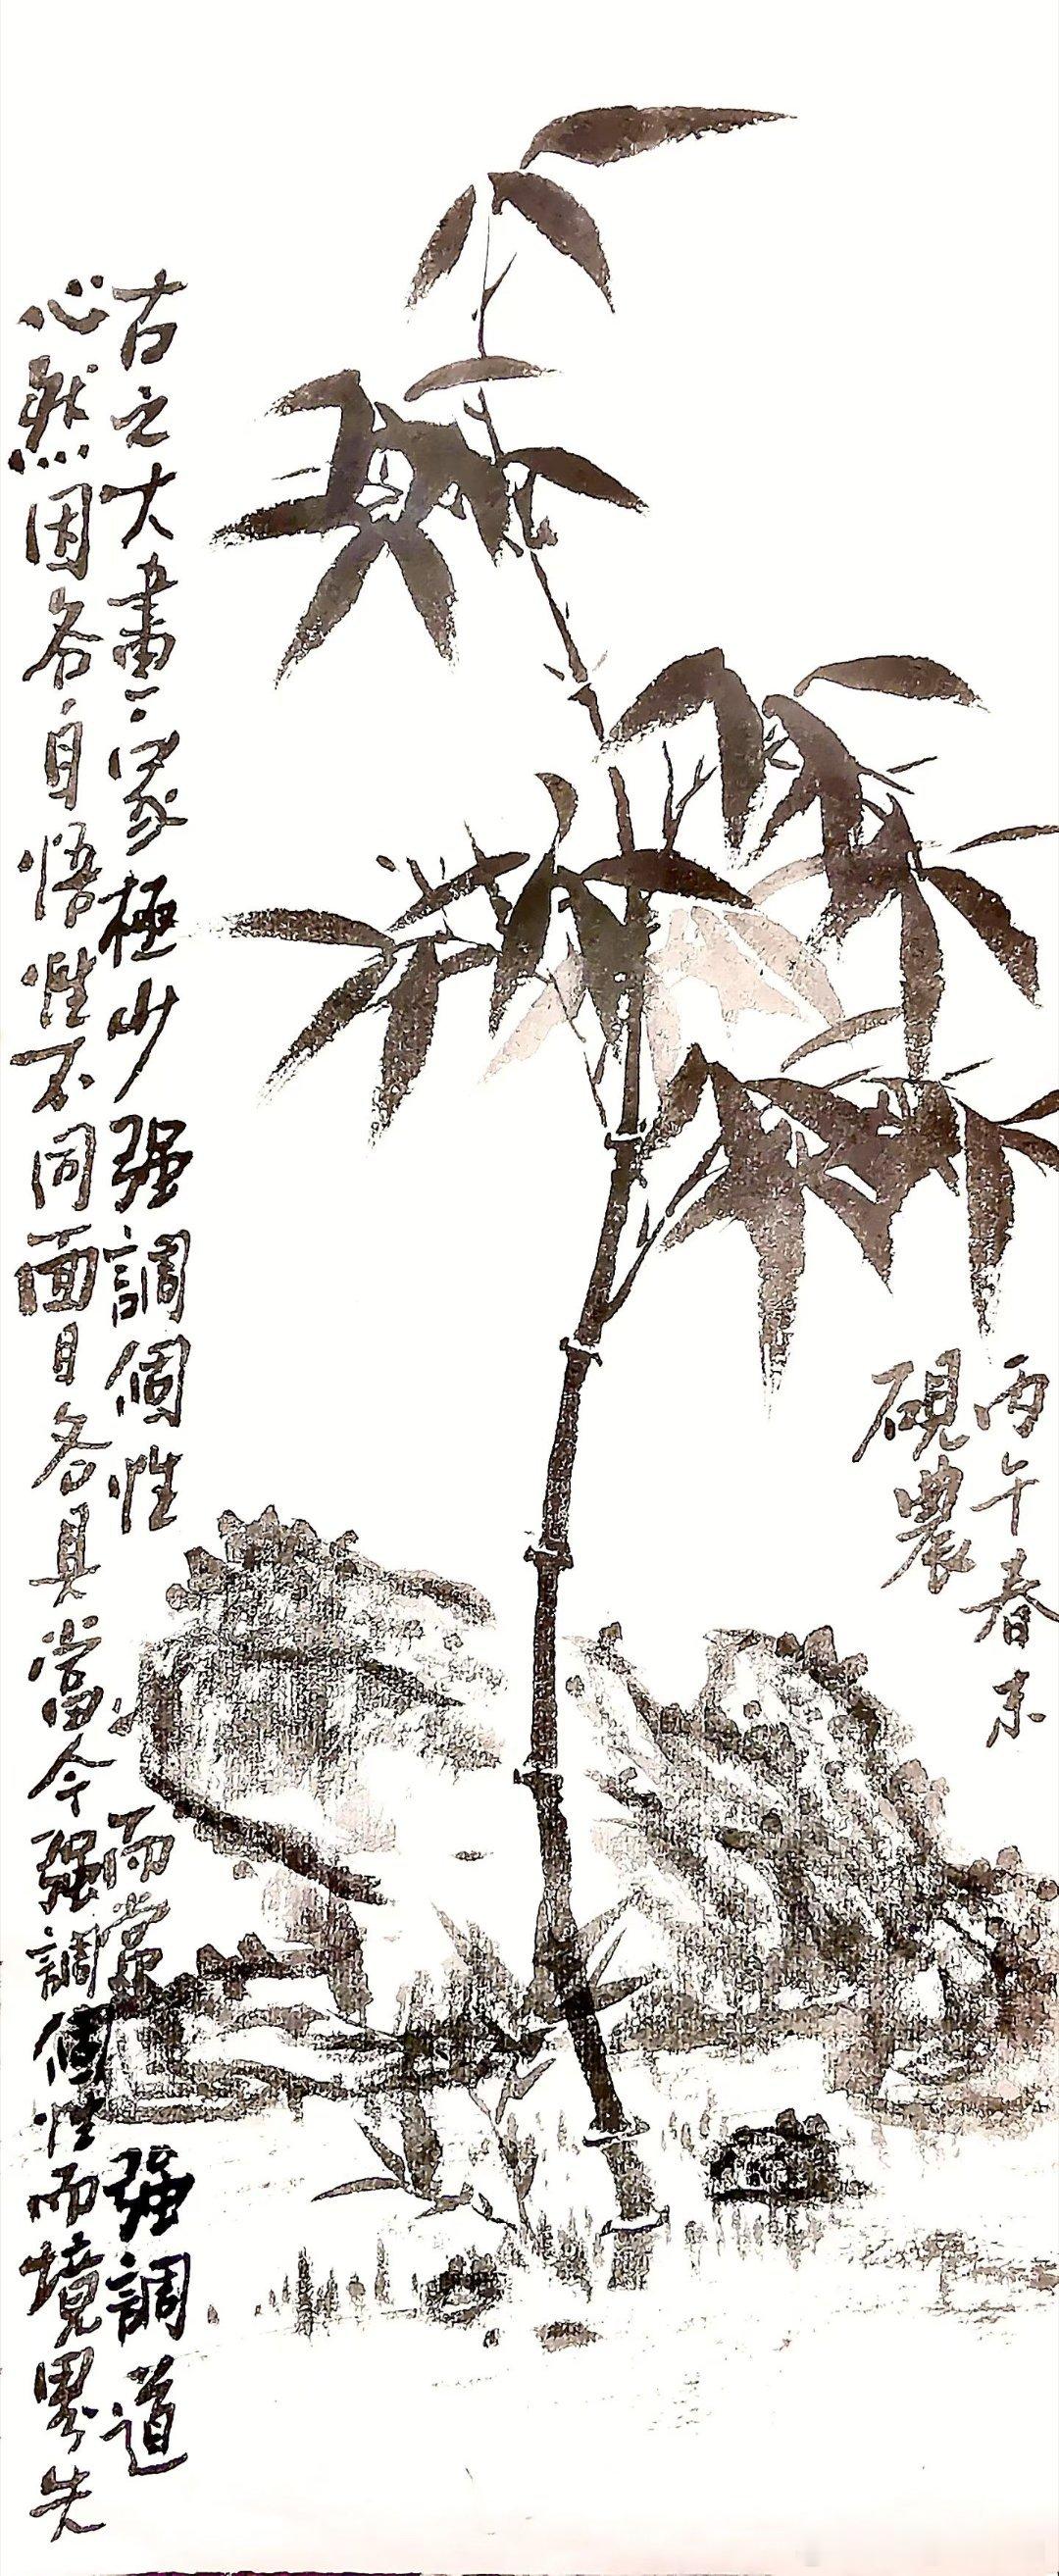 古之大畫家極少强調個性而常强調道
心然因各自悟性不同面目各具當今强調個性而境界失
丙午春末
硯農